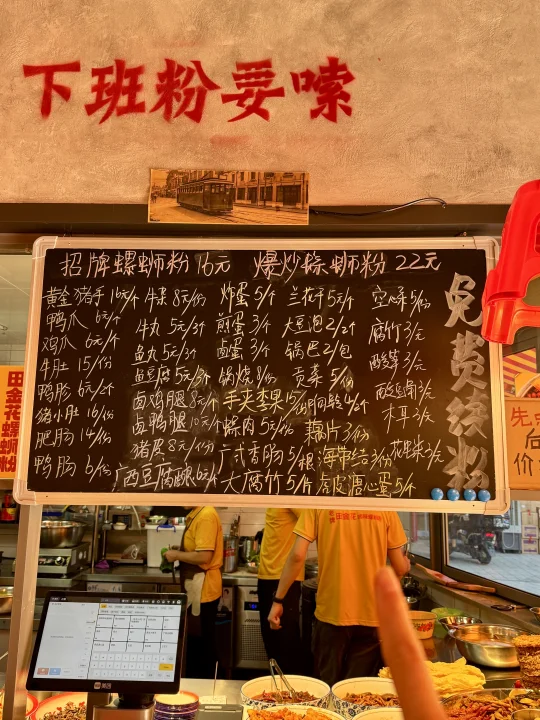 下班粉要嗦
招牌螺蛳粉 16元 爆炒螺蛳粉 22元
黄金猪手 16元/个 牛杂 8元/份 炸蛋 5/个 兰花干 5元/个 空心菜 5/份
鸭爪 6元/个 牛丸 5元/3个 煎蛋 3/个 大豆泡 2/2个 腐竹 3/元
鸡爪 6元/个 鱼丸 5元/3个 卤蛋 3/个 锅巴 2/包 酸笋 3/元
牛肚 15/份 鱼豆腐 5元/3个 锅烧 8/份 贡菜 5/份
鸭胗 6元/2个 卤鸡腿 8元/个 手夹李果 15/ 4/2个 木耳 3/元
猪小肚 16/份 卤鸭腿 10元/个 爆肉 5元/份 藕片 3/份 花生米 3/元
肥肠 14/份 猪皮 8元/份 广式香肠 5/根 海带结 3/份
鸭肠 6/份 广西豆腐酿 6元/个 大腐竹 5/片 虎皮溏心蛋 5/个
免费续粉
田金花螺蛳粉
先
后
价